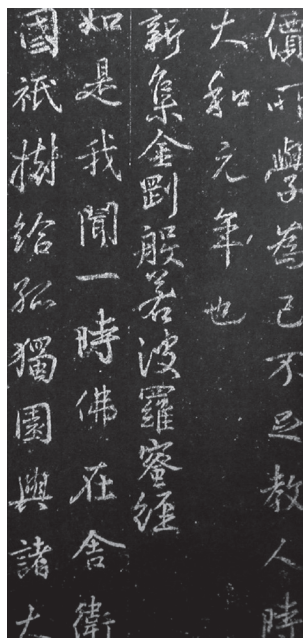 價所學為己不足教人時
大和元年也
新集金剛般若波羅蜜經
如是我聞一時佛在舍衛
國祇樹給孤獨園與諸大